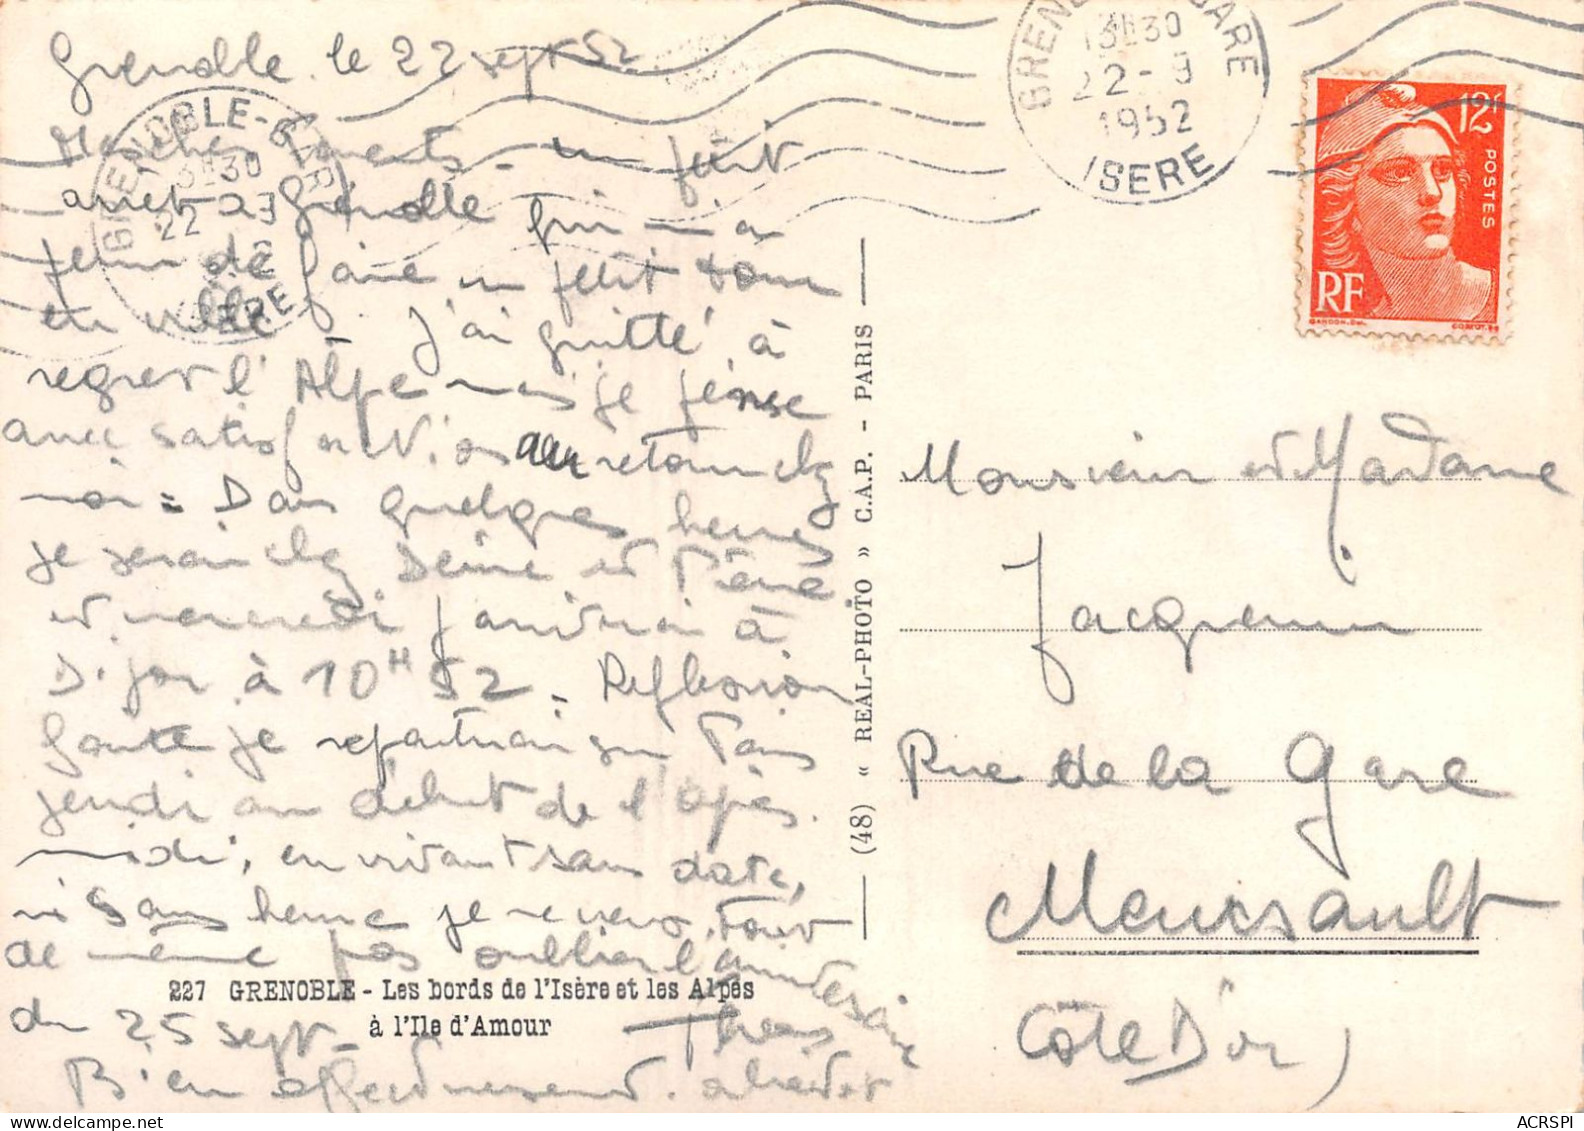 Grenoble le 22 sept 52
Mes chers Parents - un petit
arrêt à Grenoble qui m'a
permis de faire un petit tour
en ville. J'ai quitté à
regret l'Alpe mais je pense
avec satisfaction au retour chez
moi = Dans quelques heures
je serai chez Denise et Pierre
et mercredi j'arriverai à
Dijon à 10H52 - Réflexion
faite je repartirai sur Paris
jeudi au début de l'après.
midi, en vivant sans date,
ni sans heure je ne veux tout
de même pas oublier l'anniversaire
du 25 sept -
Bien affectueusement.
227 GRENOBLE - Les bords de l'Isère et les Alpes
à l'Ile d'Amour
(48) « REAL-PHOTO » C.A.P. - PARIS
GRENOBLE-GARE
13H30
22-9
1952
ISERE
GRENOBLE-GARE
13H30
22-9
ISERE
12F
POSTES
RF
GANDON.
Monsieur et Madame
Jacquemin
Rue de la Gare
Meursault
(Côte D'or)
ACRSPI